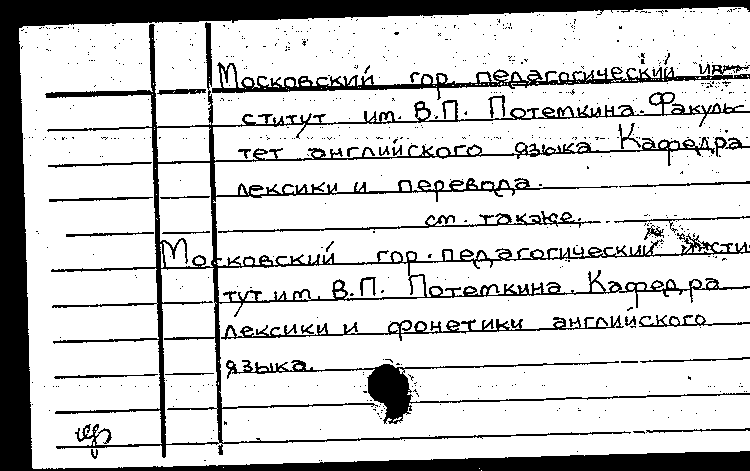 Московский гор. педагогический ин-
ститут им. В.П. Потемкина. Факуль-
тет английского языка Кафедра
лексики и перевода.
см. также.
Московский гор. педагогический инсти-
тут им. В.П. Потемкина. Кафедра
лексики и фонетики английского
языка.